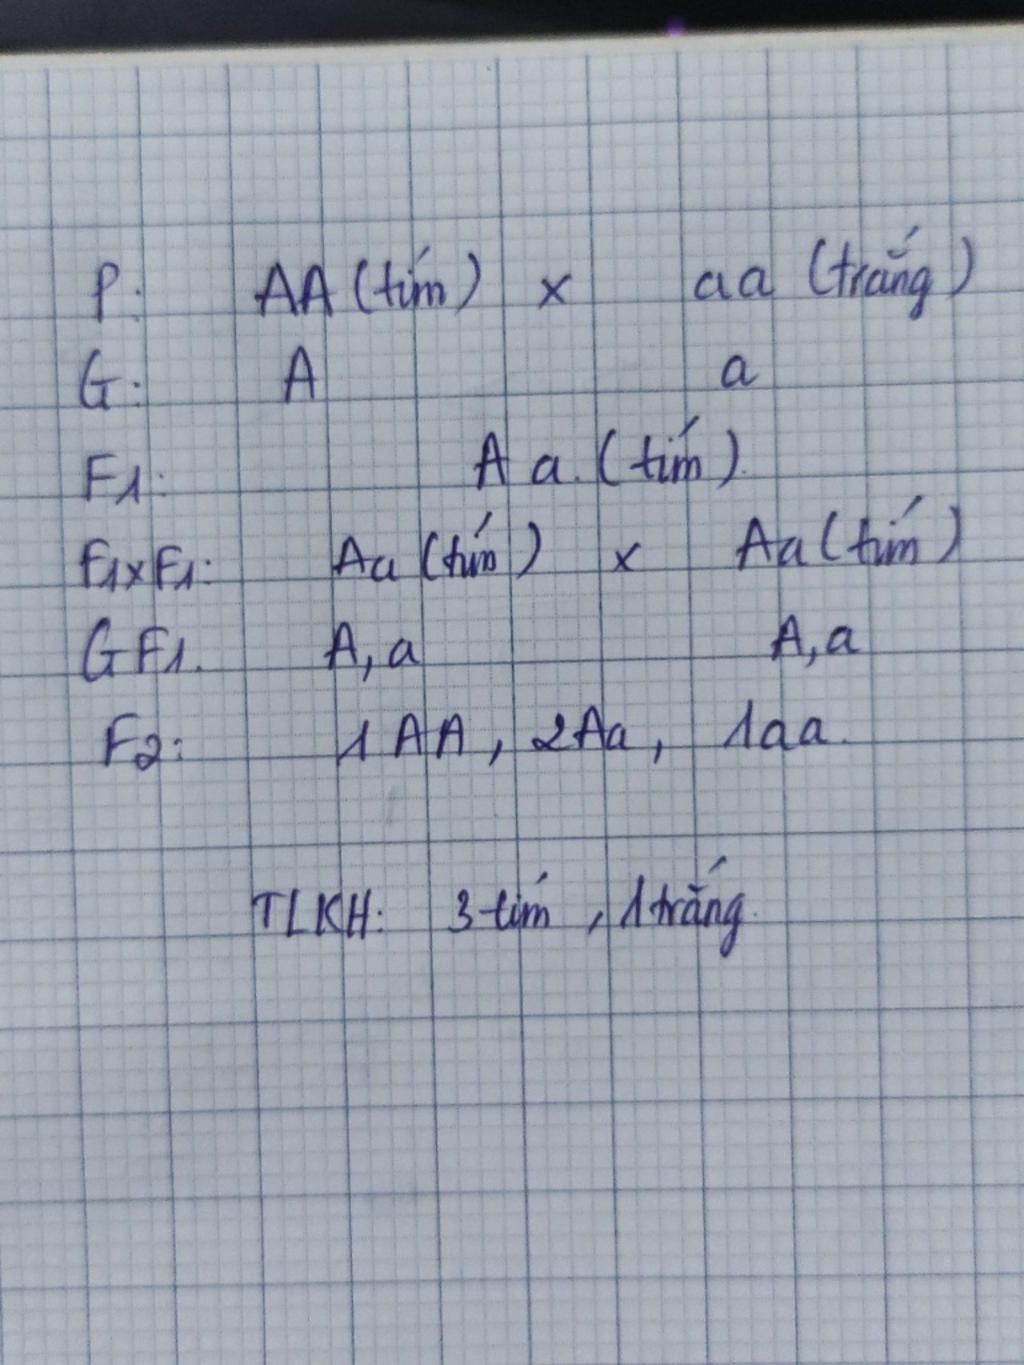 P: AA (tím) x aa (trắng)
G: A a
F1: Aa. (tím).
F1xF1: Aa (tím) x Aa (tím)
GF1. A, a A, a
F2: 1 AA, 2Aa, 1aa.
TLKH: 3 tím, 1 trắng.